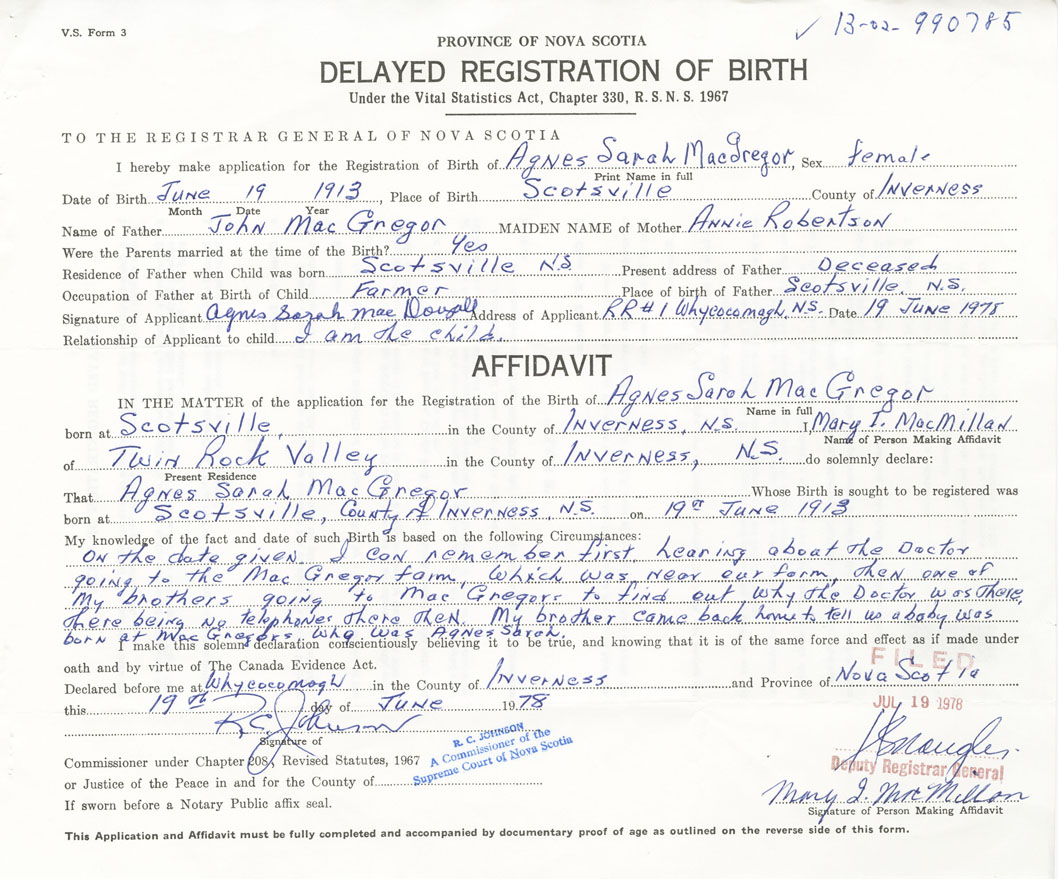 V.S. Form 3
✓ 13-02-990785
PROVINCE OF NOVA SCOTIA
DELAYED REGISTRATION OF BIRTH
Under the Vital Statistics Act, Chapter 330, R. S. N. S. 1967
TO THE REGISTRAR GENERAL OF NOVA SCOTIA
I hereby make application for the Registration of Birth of Agnes Sarah MacGregor, Sex female
Print Name in full
Date of Birth June 19 1913, Place of Birth Scotsville County of Inverness
Month Date Year
Name of Father John Mac Gregor MAIDEN NAME of Mother Annie Robertson
Were the Parents married at the time of the Birth? Yes
Residence of Father when Child was born Scotsville N.S. Present address of Father Deceased
Occupation of Father at Birth of Child Farmer Place of birth of Father Scotsville N.S.
Signature of Applicant Agnes Sarah Mac Dougall Address of Applicant RR#1 Whycocomagh, N.S. Date 19 June 1978
Relationship of Applicant to child I am the child.
AFFIDAVIT
IN THE MATTER of the application for the Registration of the Birth of Agnes Sarah Mac Gregor
Name in full
born at Scotsville, in the County of Inverness, N.S. I, Mary I. MacMillan
Name of Person Making Affidavit
of Twin Rock Valley in the County of Inverness, N.S. do solemnly declare:
Present Residence
That Agnes Sarah Mac Gregor Whose Birth is sought to be registered was
born at Scotsville, County of Inverness, N.S. on 19th June 1913
My knowledge of the fact and date of such Birth is based on the following Circumstances:
On the date given I can remember first hearing about the Doctor
going to the Mac Gregor farm, which was near our farm, then one of
My brothers going to Mac Gregors to find out why the Doctor was there,
there being no telephones there then. My brother came back home to tell us a baby was
born at Mac Gregors who was Agnes Sarah.
I make this solemn declaration conscientiously believing it to be true, and knowing that it is of the same force and effect as if made under
oath and by virtue of The Canada Evidence Act.
FILED
Declared before me at Whycocomagh in the County of Inverness and Province of Nova Scotia
this 19th day of June 1978
JUL 19 1978
R.C. Johnson
Signature of
R. C. JOHNSON
A Commissioner of the
Supreme Court of Nova Scotia
Commissioner under Chapter 208, Revised Statutes, 1967
Deputy Registrar General
or Justice of the Peace in and for the County of
Mary I. MacMillan
Signature of Person Making Affidavit
If sworn before a Notary Public affix seal.
This Application and Affidavit must be fully completed and accompanied by documentary proof of age as outlined on the reverse side of this form.